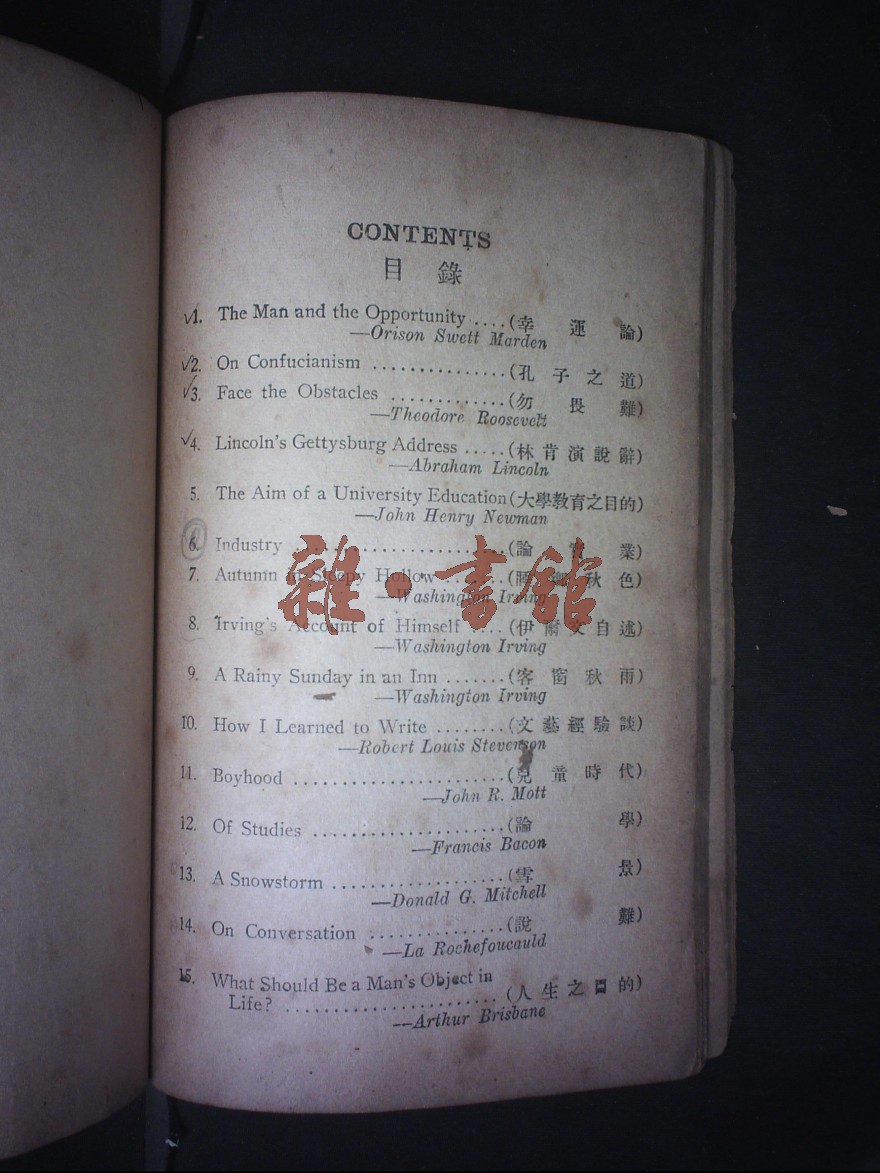 CONTENTS
目錄
1. The Man and the Opportunity ....(幸運論)
—Orison Swett Marden
2. On Confucianism ...............(孔子之道)
3. Face the Obstacles .............(勿畏難)
—Theodore Roosevelt
4. Lincoln's Gettysburg Address .....(林肯演說辭)
—Abraham Lincoln
5. The Aim of a University Education(大學教育之目的)
—John Henry Newman
6. Industry ........................(論實業)
7. Autumn in Sleepy Hollow .......(睡鄉秋色)
—Washington Irving
8. Irving's Account of Himself ....(伊爾文自述)
—Washington Irving
9. A Rainy Sunday in an Inn .......(客窗秋雨)
—Washington Irving
10. How I Learned to Write ........(文藝經驗談)
—Robert Louis Stevenson
11. Boyhood .......................(兒童時代)
—John R. Mott
12. Of Studies .....................(論學)
—Francis Bacon
13. A Snowstorm ...................(雪景)
—Donald G. Mitchell
14. On Conversation ...............(說難)
—La Rochefoucauld
15. What Should Be a Man's Object in
Life? .......................(人生之目的)
—Arthur Brisbane
雜·書館